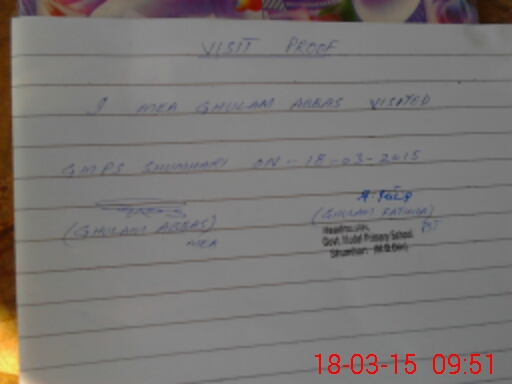 VISIT PROOF
I MEA GHULAM ABBAS VISITED
GMPS SHUMHARI ON - 18-03-2015
(GHULAM ABBAS)
MEA
(GHULAM FATIMA)
Govt. Model Primary School
Shumhari
18-03-15 09:51